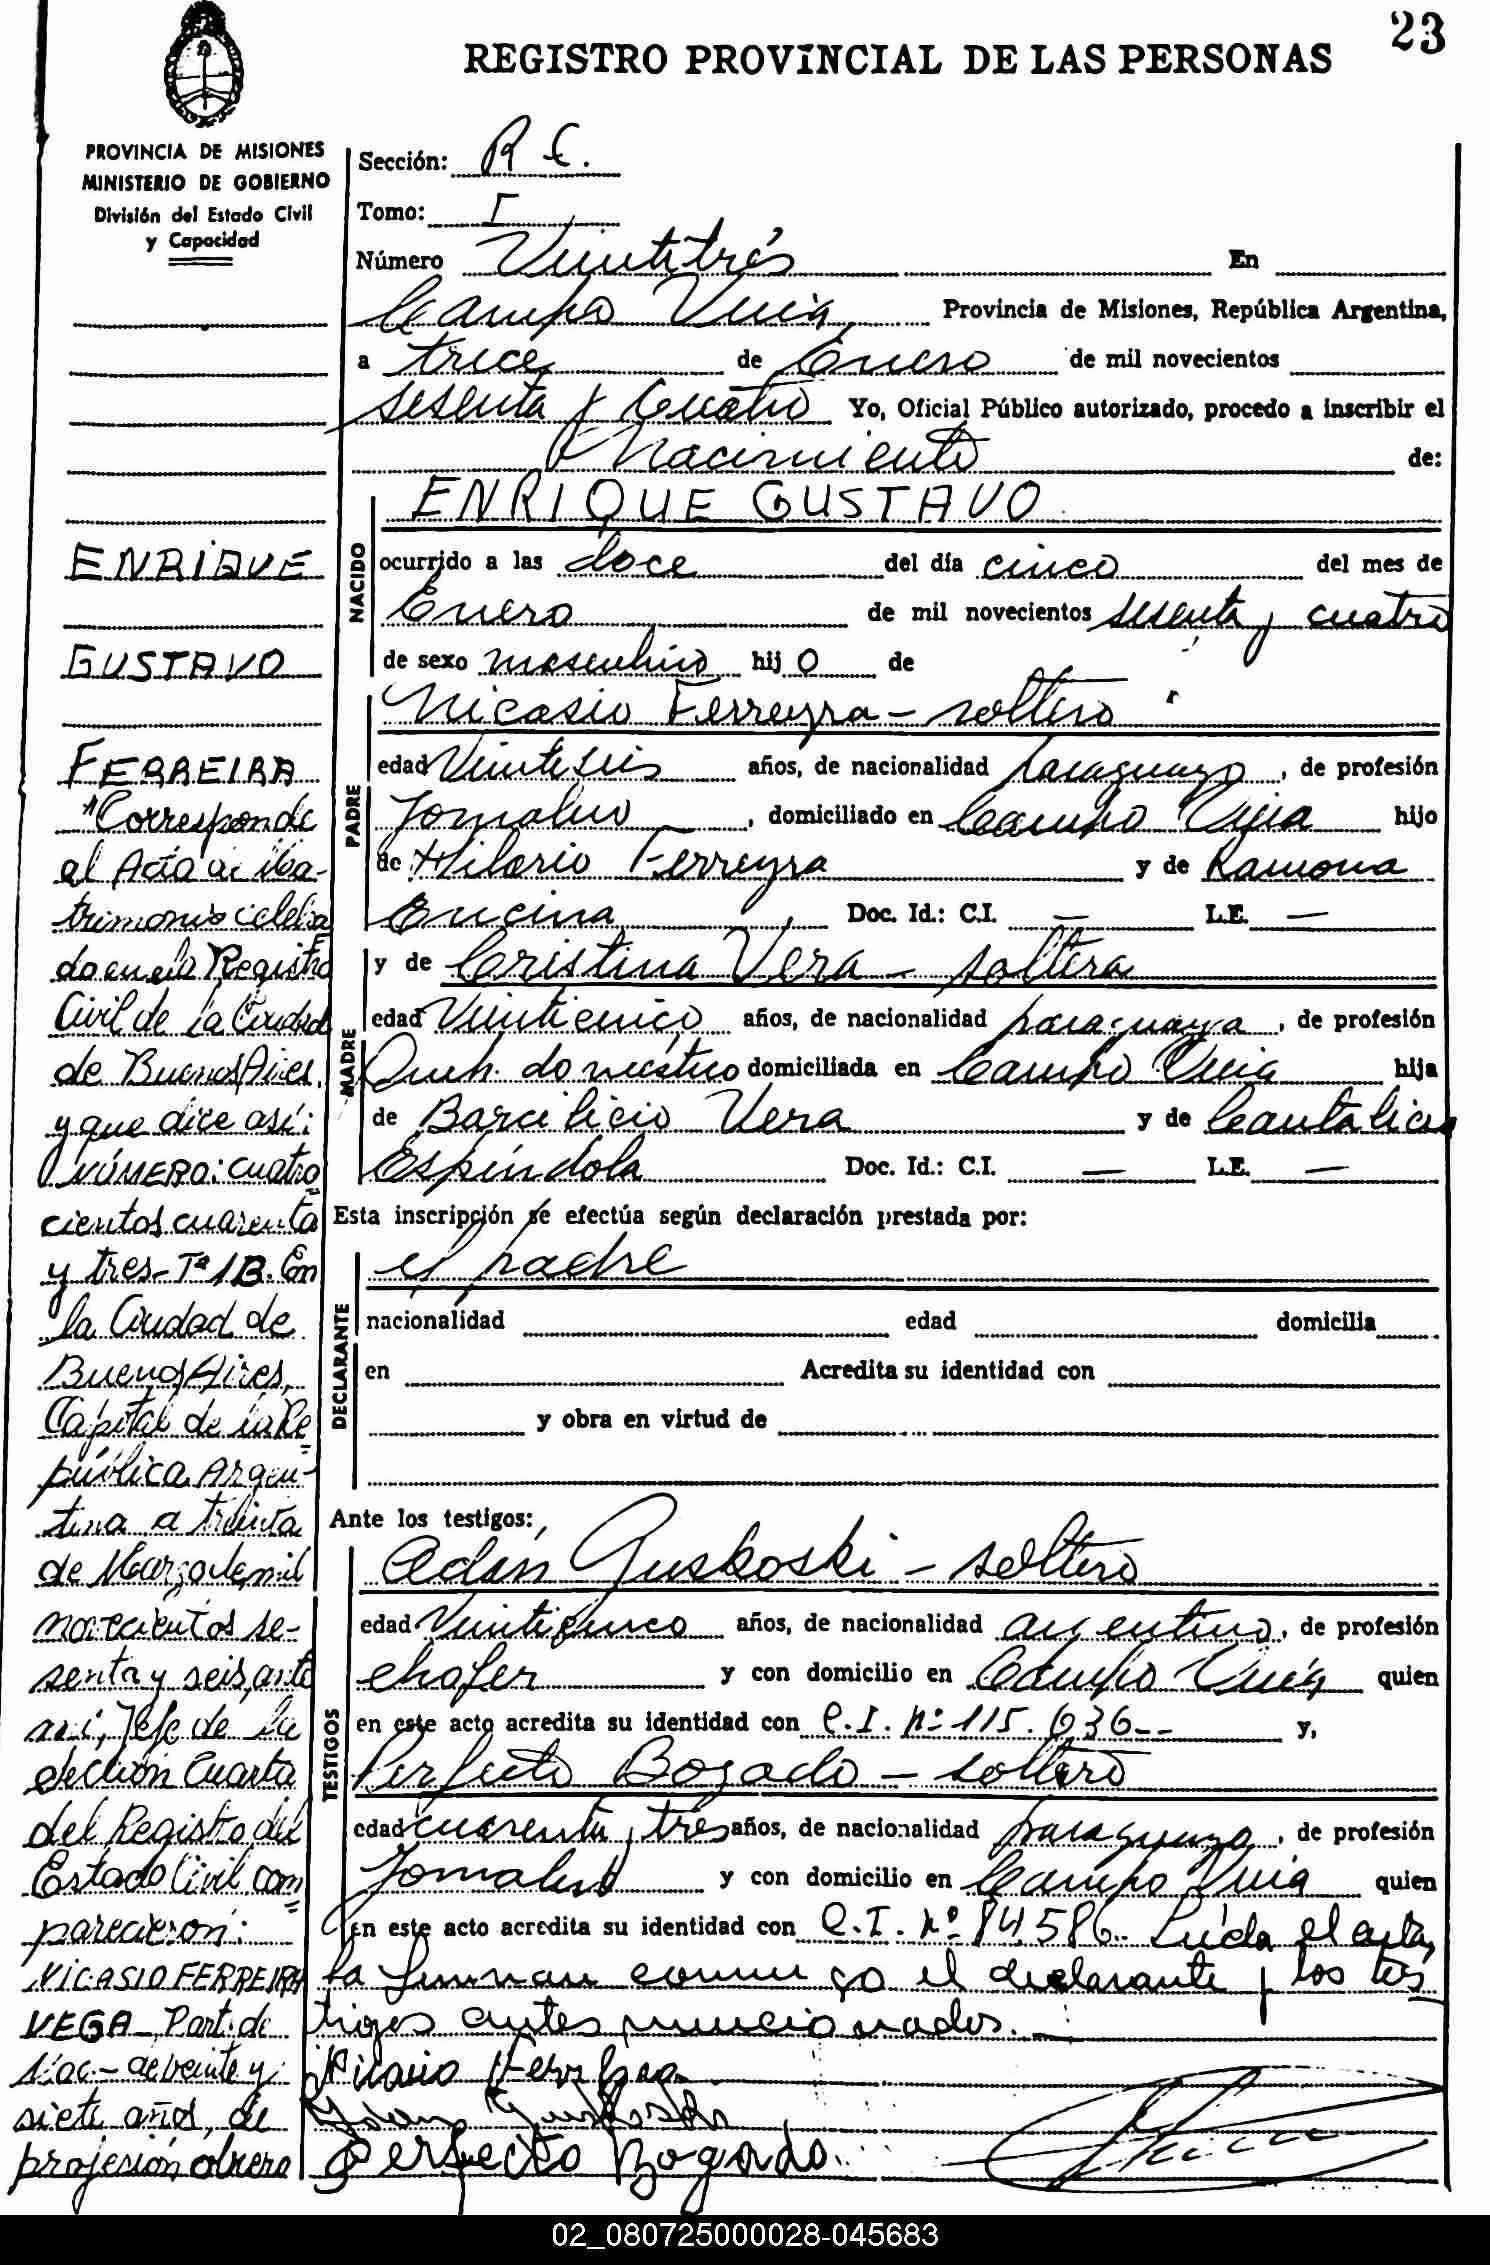 23
REGISTRO PROVINCIAL DE LAS PERSONAS
PROVINCIA DE MISIONES
MINISTERIO DE GOBIERNO
División del Estado Civil
y Capacidad
Sección: R C.
Tomo: I
Número Veintitrés En
Campo Viera Provincia de Misiones, República Argentina,
a trece de Enero de mil novecientos
sesenta y Cuatro Yo, Oficial Público autorizado, procedo a inscribir el
Nacimiento de:
NACIDO
ENRIQUE GUSTAVO
ocurrido a las doce del día cinco del mes de
Enero de mil novecientos sesenta y cuatro
de sexo masculino hijo de
PADRE
Nicasio Ferreyra - soltero
edad Veintiseis años, de nacionalidad paraguayo, de profesión
Jornalero, domiciliado en Campo Viera hijo
de Hilario Ferreyra y de Ramona
Encina Doc. Id.: C.I. — L.E. —
MADRE
y de Cristina Vera - soltera
edad Veinticinco años, de nacionalidad paraguaya, de profesión
Queh. doméstico domiciliada en Campo Viera hija
de Barcilicio Vera y de Cantalicia
Espíndola Doc. Id.: C.I. — L.E. —
Esta inscripción se efectúa según declaración prestada por:
DECLARANTE
el padre
nacionalidad edad domicilia
en Acredita su identidad con
y obra en virtud de
Ante los testigos:
TESTIGOS
Adán Guskoski - soltero
edad Veinticinco años, de nacionalidad argentino, de profesión
chofer y con domicilio en Campo Viera quien
en este acto acredita su identidad con C.I. Nº 115.636-- y,
Perfecto Bogado - soltero
edad cuarenta y tres años, de nacionalidad paraguayo, de profesión
Jornalero y con domicilio en Campo Viera quien
en este acto acredita su identidad con C.I. Nº 84586. Leída el acta,
la firman conmigo el declarante y los tes
tigos antes mencionados.
Perfecto Bogado
ENRIQUE
GUSTAVO
FERREIRA
"Corresponde
al Acta de Ma-
trimonio celebra
do en el Registro
Civil de la Ciudad
de Buenos Aires,
y que dice así:
NÚMERO: cuatro
cientos cuarenta
y tres - Tº 1B. En
la Ciudad de
Buenos Aires,
Capital de la Re
pública Argen-
tina a treinta
de Marzo de mil
novecientos se-
senta y seis, ante
mi, Jefe de la
Sección Cuarta
del Registro del
Estado Civil, com
parecieron:
NICASIO FERREIRA
VEGA - Part. de
Nac. - de veinte y
siete años, de
profesión obrero
02_080725000028-045683